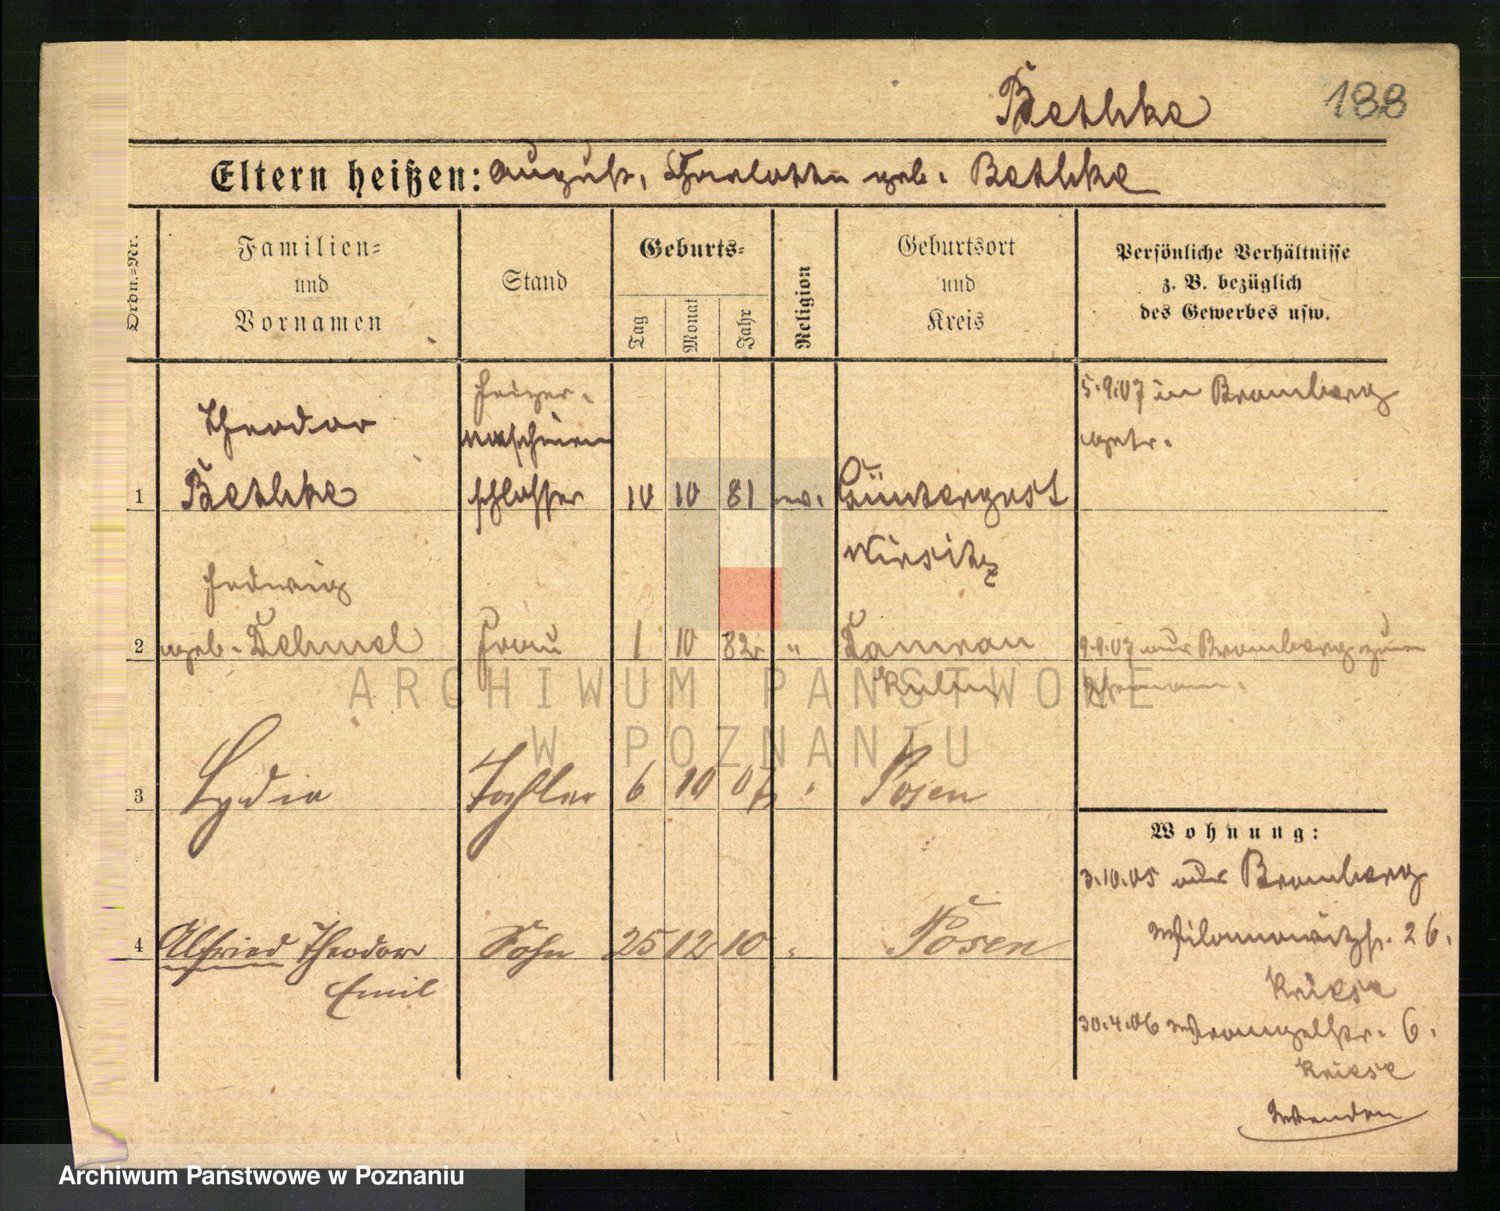 Bethke 188
Eltern heißen: August, Charlotte geb. Bethke
Ordn.=Nr.
Familien=
und
Vornamen
Stand
Geburts=
Tag
Monat
Jahr
Religion
Geburtsort
und
Kreis
Persönliche Verhältnisse
z. B. bezüglich
des Gewerbes usw.
1
Theodor
Bethke
maschinen
schlosser
10 10 81 ev.
Güntergost
Wirsitz
5.9.07 in Bromberg
2
Hedwig
geb. Dehmel
Frau
1 10 82 "
Kulm
9.9.07 aus Bromberg zum
Ehemann.
3
Lydia
Tochter
6 10 07 "
Posen
4
Alfried Theodor
Emil
Sohn
25 12 10 "
Posen
Wohnung:
3.10.05 aus Bromberg
26.
Kriese
30.4.06 Wrangelstr. 6.
Kriese
Wenden
ARCHIWUM PAŃSTWOWE
W POZNANIU
Archiwum Państwowe w Poznaniu